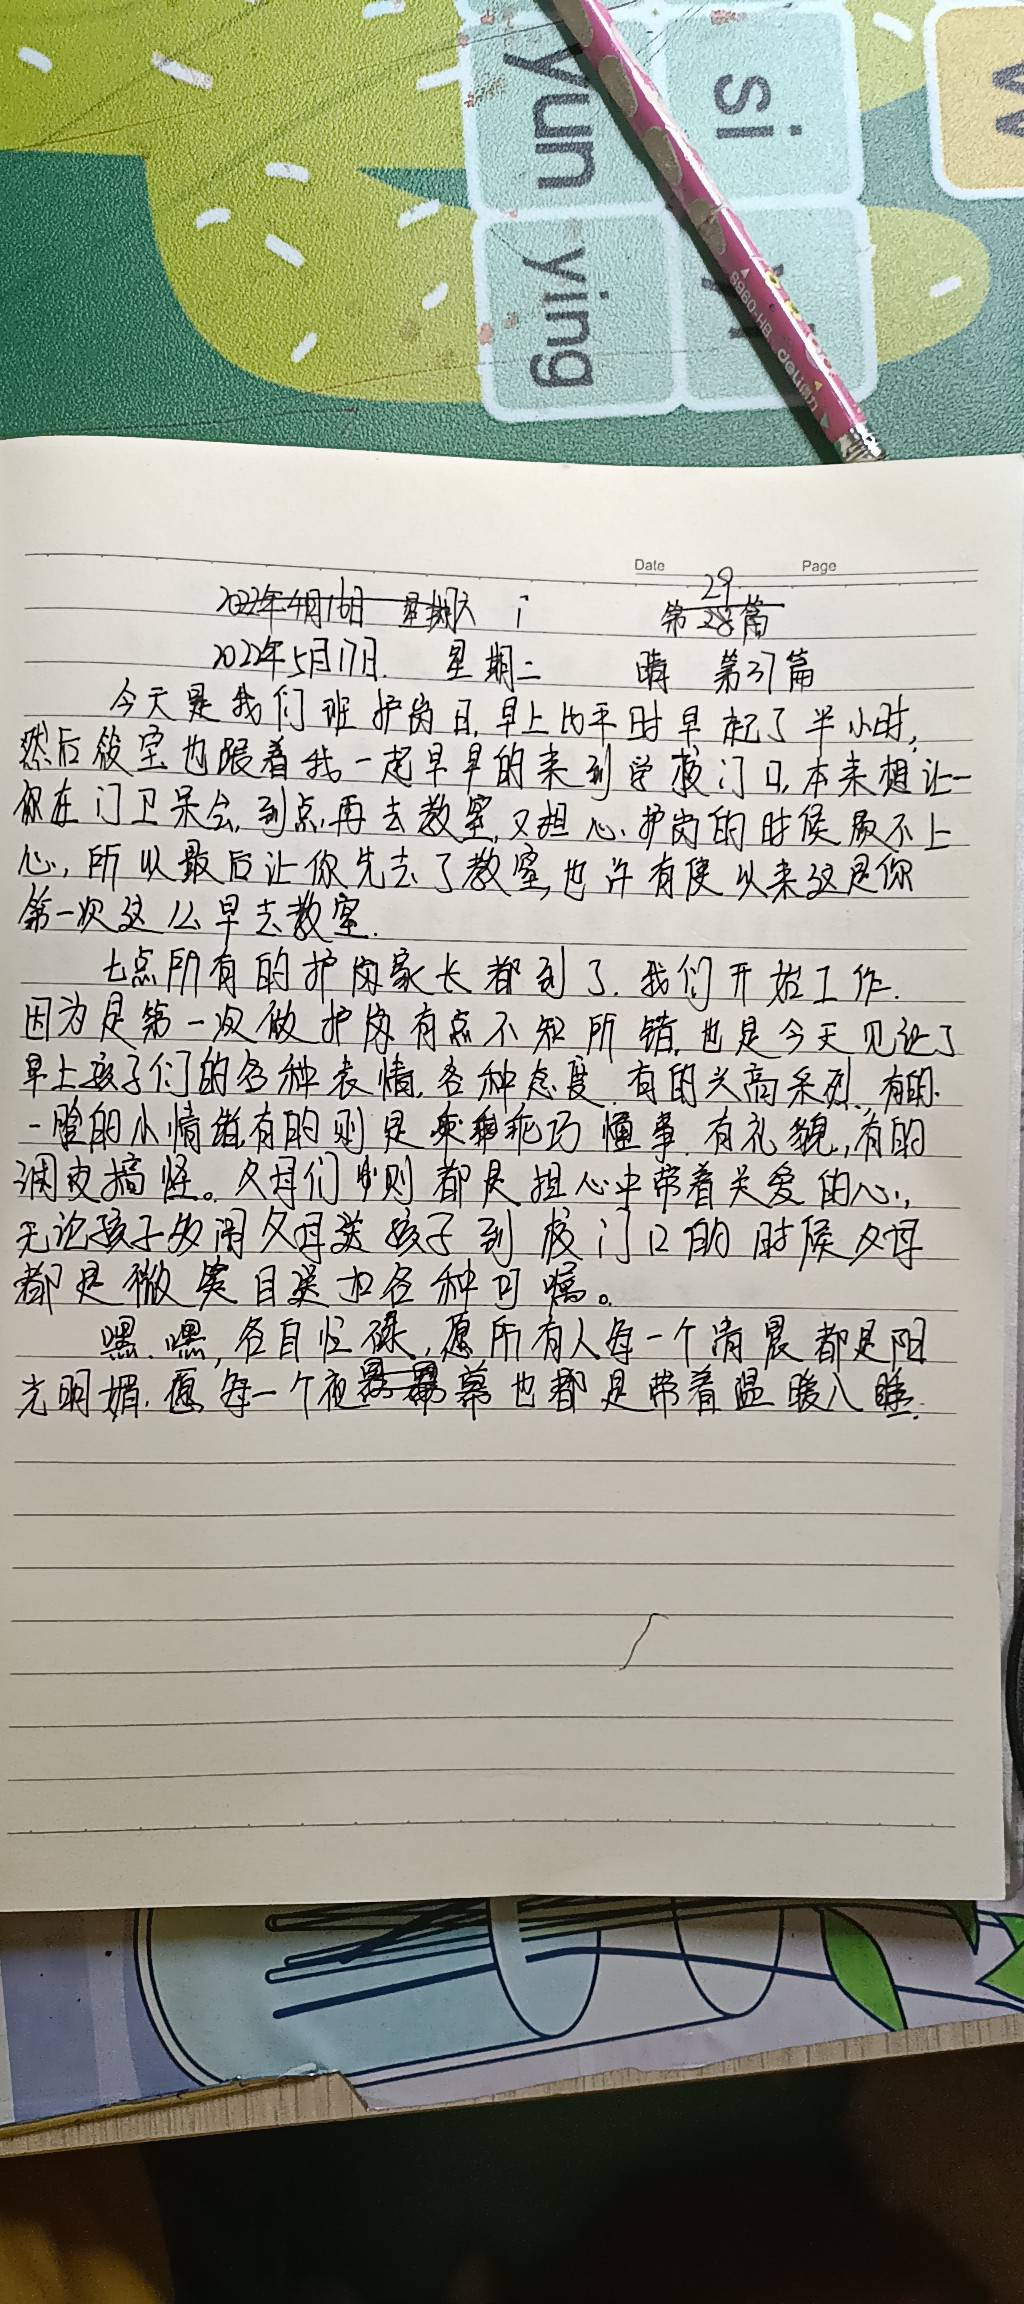 yun
si
w
ying
6960-HB deli
Date
Page
2022年4月16日 星期六
29
第28篇
2022年5月17日. 星期二 晴 第37篇
今天是我们班护岗日,早上比平时早起了半小时,
然后筱宝也跟着我一起早早的来到学校门口,本来想让一
你在门卫呆会,到点再去教室,又担心护岗的时候顾不上
心,所以最后让你先去了教室,也许有史以来这是你
第一次这么早去教室.
七点所有的护岗家长都到了.我们开始工作.
因为是第一次做护岗有点不知所错,也是今天见证了
早上孩子们的各种表情,各种态度.有的兴高采烈,有的
一脸的小情绪,有的则是乖巧懂事.有礼貌,有的
调皮搞怪。父母们则都是担心中带着关爱的心,
无论孩子多闹父母送孩子到校门口的时候父母
都是微笑目送加各种叮嘱。
嘿.嘿,各自忙碌,愿所有人每一个清晨都是阳
光明媚.愿每一个夜幕也都是带着温暖入睡.